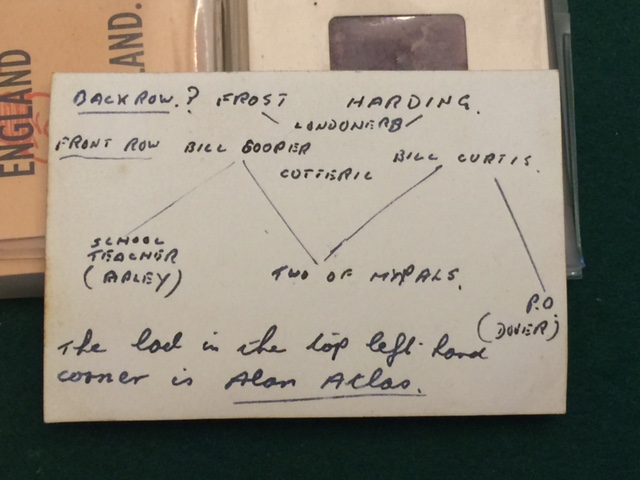 ENGLAND
LAND.
BACK ROW. ? FROST HARDING.
LONDONERS
FRONT ROW BILL COOPER BILL CURTIS.
COTTERIL
SCHOOL
TEACHER
(ARLEY) TWO OF MY PALS.
P.O.
(DOVER)
The lad in the top left-hand
corner is Alan